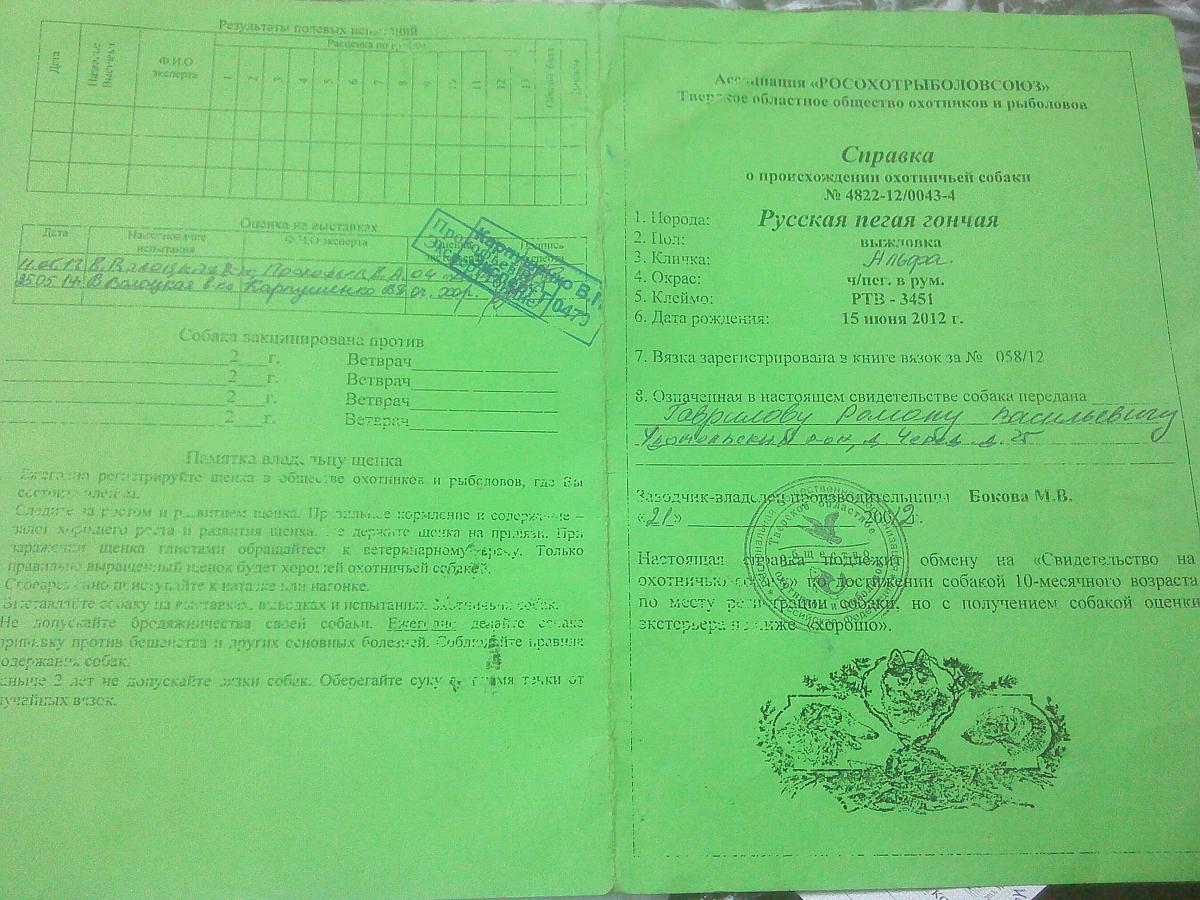 Результаты полевых испытаний
Дата
Ф.И.О эксперта
1 2 3 4 5 6 7 8 9 10 11 12 13
Оценка на выставках
Дата
Ф.И.О эксперта
25.05.14г.
Карпушенко
Карпушенко В.
0479
Собака вакцинирована против
2 г. Ветврач
2 г. Ветврач
2 г. Ветврач
2 г. Ветврач
Памятка владельцу щенка
Ежегодно регистрируйте щенка в обществе охотников и рыболовов, где Вы
состоите членом.
Следите за ростом и развитием щенка. Правильное кормление и содержание –
залог хорошего роста и развития щенка. Не держите щенка на привязи. При
заражении щенка глистами обращайтесь к ветеринарному врачу. Только
правильно выращенный щенок будет хорошей охотничьей собакой.
Своевременно приступайте к натаске или нагонке.
Выставляйте собаку на выставках, выводках и испытаниях охотничьих собак.
Не допускайте бродяжничества своей собаки. Ежегодно делайте собаке
прививку против бешенства и других основных болезней. Соблюдайте правила
содержания собак.
2 лет не допускайте вязки собак. Оберегайте суку во время течки от
случайных вязок.
Ассоциация «РОСОХОТРЫБОЛОВСОЮЗ»
Тверское областное общество охотников и рыболовов
Справка
о происхождении охотничьей собаки
№ 4822-12/0043-4
1. Порода: Русская пегая гончая
2. Пол: выжловка
3. Кличка: Альфа
4. Окрас: ч/пег. в рум.
5. Клеймо: РТВ - 3451
6. Дата рождения: 15 июня 2012 г.
7. Вязка зарегистрирована в книге вязок за № 058/12
8. Означенная в настоящем свидетельстве собака передана
Гаврилову Роману Васильевичу
д. 25
Заводчик-владелец производительницы Бокова М.В.
«21» 20012г.
Настоящая справка подлежит обмену на «Свидетельство на
охотничью собаку» по достижении собакой 10-месячного возраста
по месту регистрации собаки, но с получением собакой оценки
экстерьера не ниже «хорошо».